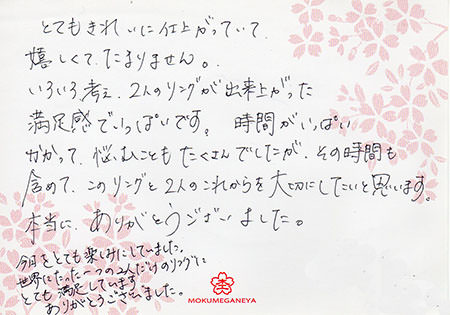 とてもきれいに仕上がっていて
嬉しくてたまりません。
いろいろ考え、2人のリングが出来上がった
満足感でいっぱいです。時間がいっぱい
かかって、悩むこともたくさんでしたが、その時間も
含めて、このリングと2人のこれからを大切にしたいと思います。
本当に、ありがとうございました。
今日をとても楽しみにしていました。
世界にたった一つの2人だけのリングに
とても満足しています。
ありがとうございました。
MOKUMEGANEYA